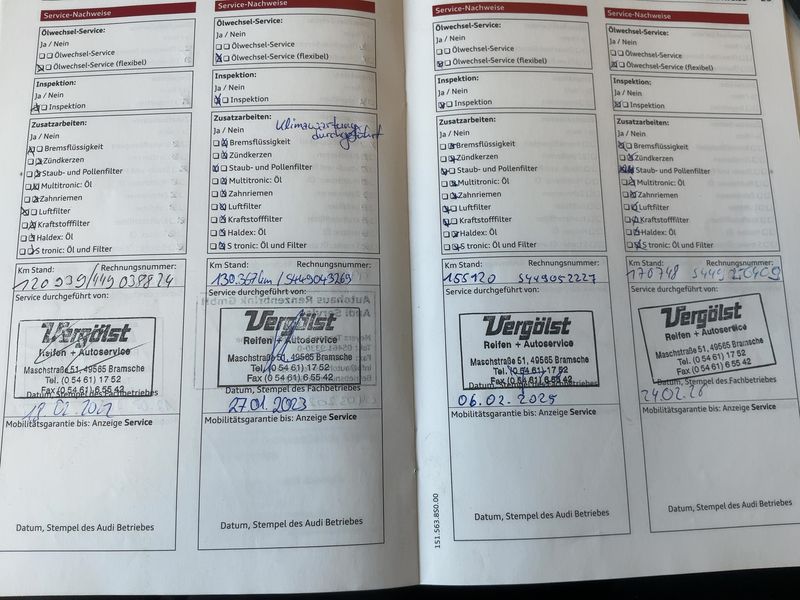 Service-Nachweise
Ölwechsel-Service:
Ja / Nein
Ölwechsel-Service
Ölwechsel-Service (flexibel)
Inspektion:
Ja / Nein
Inspektion
Zusatzarbeiten:
Ja / Nein
Bremsflüssigkeit
Zündkerzen
Staub- und Pollenfilter
Multitronic: Öl
Zahnriemen
Luftfilter
Kraftstofffilter
Haldex: Öl
S tronic: Öl und Filter
Km Stand: Rechnungsnummer:
120 939/449 038874
Service durchgeführt von:
Vergölst
Reifen + Autoservice
Maschstraße 51, 49565 Bramsche
Tel. (0 54 61) 17 52
Fax (0 54 61) 6 55 42
Datum, Stempel des Fachbetriebes
Mobilitätsgarantie bis: Anzeige Service
Datum, Stempel des Audi Betriebes
Service-Nachweise
Ölwechsel-Service:
Ja / Nein
Ölwechsel-Service
Ölwechsel-Service (flexibel)
Inspektion:
Ja / Nein
Inspektion
Zusatzarbeiten:
Ja / Nein
Klimawartung
durchgeführt
Bremsflüssigkeit
Zündkerzen
Staub- und Pollenfilter
Multitronic: Öl
Zahnriemen
Luftfilter
Kraftstofffilter
Haldex: Öl
S tronic: Öl und Filter
Km Stand: Rechnungsnummer:
130.367km / S449043269
Service durchgeführt von:
Vergölst
Reifen + Autoservice
Maschstraße 51, 49565 Bramsche
Tel. (0 54 61) 17 52
Fax (0 54 61) 6 55 42
Datum, Stempel des Fachbetriebes
27.01.2023
Mobilitätsgarantie bis: Anzeige Service
Datum, Stempel des Audi Betriebes
Service-Nachweise
Ölwechsel-Service:
Ja / Nein
Ölwechsel-Service
Ölwechsel-Service (flexibel)
Inspektion:
Ja / Nein
Inspektion
Zusatzarbeiten:
Ja / Nein
Bremsflüssigkeit
Zündkerzen
Staub- und Pollenfilter
Multitronic: Öl
Zahnriemen
Luftfilter
Kraftstofffilter
Haldex: Öl
S tronic: Öl und Filter
Km Stand: Rechnungsnummer:
155120 S449052227
Service durchgeführt von:
Vergölst
Reifen + Autoservice
Maschstraße 51, 49565 Bramsche
Tel. (0 54 61) 17 52
Fax (0 54 61) 6 55 42
Datum, Stempel des Fachbetriebes
06.02.2025
Mobilitätsgarantie bis: Anzeige Service
Datum, Stempel des Audi Betriebes
151.563.850.00
Service-Nachweise
Ölwechsel-Service:
Ja / Nein
Ölwechsel-Service
Ölwechsel-Service (flexibel)
Inspektion:
Ja / Nein
Inspektion
Zusatzarbeiten:
Ja / Nein
Bremsflüssigkeit
Zündkerzen
Staub- und Pollenfilter
Multitronic: Öl
Zahnriemen
Luftfilter
Kraftstofffilter
Haldex: Öl
S tronic: Öl und Filter
Km Stand: Rechnungsnummer:
170748
Service durchgeführt von:
Vergölst
Reifen + Autoservice
Maschstraße 51, 49565 Bramsche
Tel. (0 54 61) 17 52
Fax (0 54 61) 6 55 42
Datum, Stempel des Fachbetriebes
24.02.26
Mobilitätsgarantie bis: Anzeige Service
Datum, Stempel des Audi Betriebes